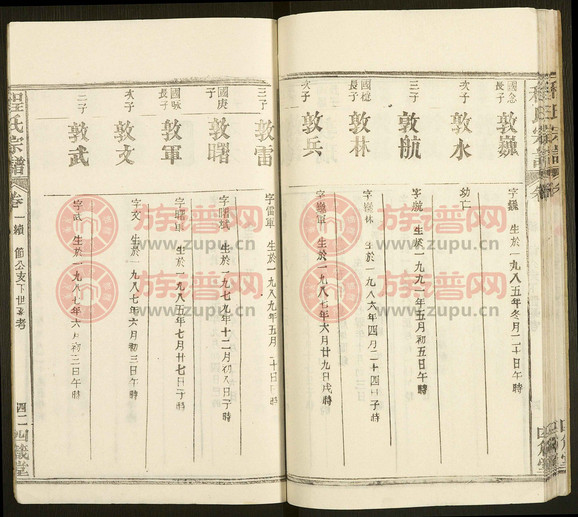 國念
長子
敦巍
字巍 生於一九八五年冬月二十日午時
次子
敦水
幼亡
三子
敦航
字航 生於一九九二年五月初五日午時
長子
敦林
生於一九八六年四月二十四日子時
次子
敦兵
生於一九八七年六月廿九日戌時
三子
敦雷
字雷軍 生於一九八九年五月二十日日時
國庚
子
敦曙
字曙斌 生於一九七九年十二月初八日子時
長子
敦軍
字曙軍 生於一九八五年七月廿七日子時
次子
敦文
字文 生於一九八七年六月初三日午時
三子
敦武
字武 生於一九八七年六月初三日午時
程氏宗譜
卷一續 節公支下世系考
族谱网
www.zupu.cn
族谱网
www.zupu.cn
族谱网
www.zupu.cn
族谱网
www.zupu.cn